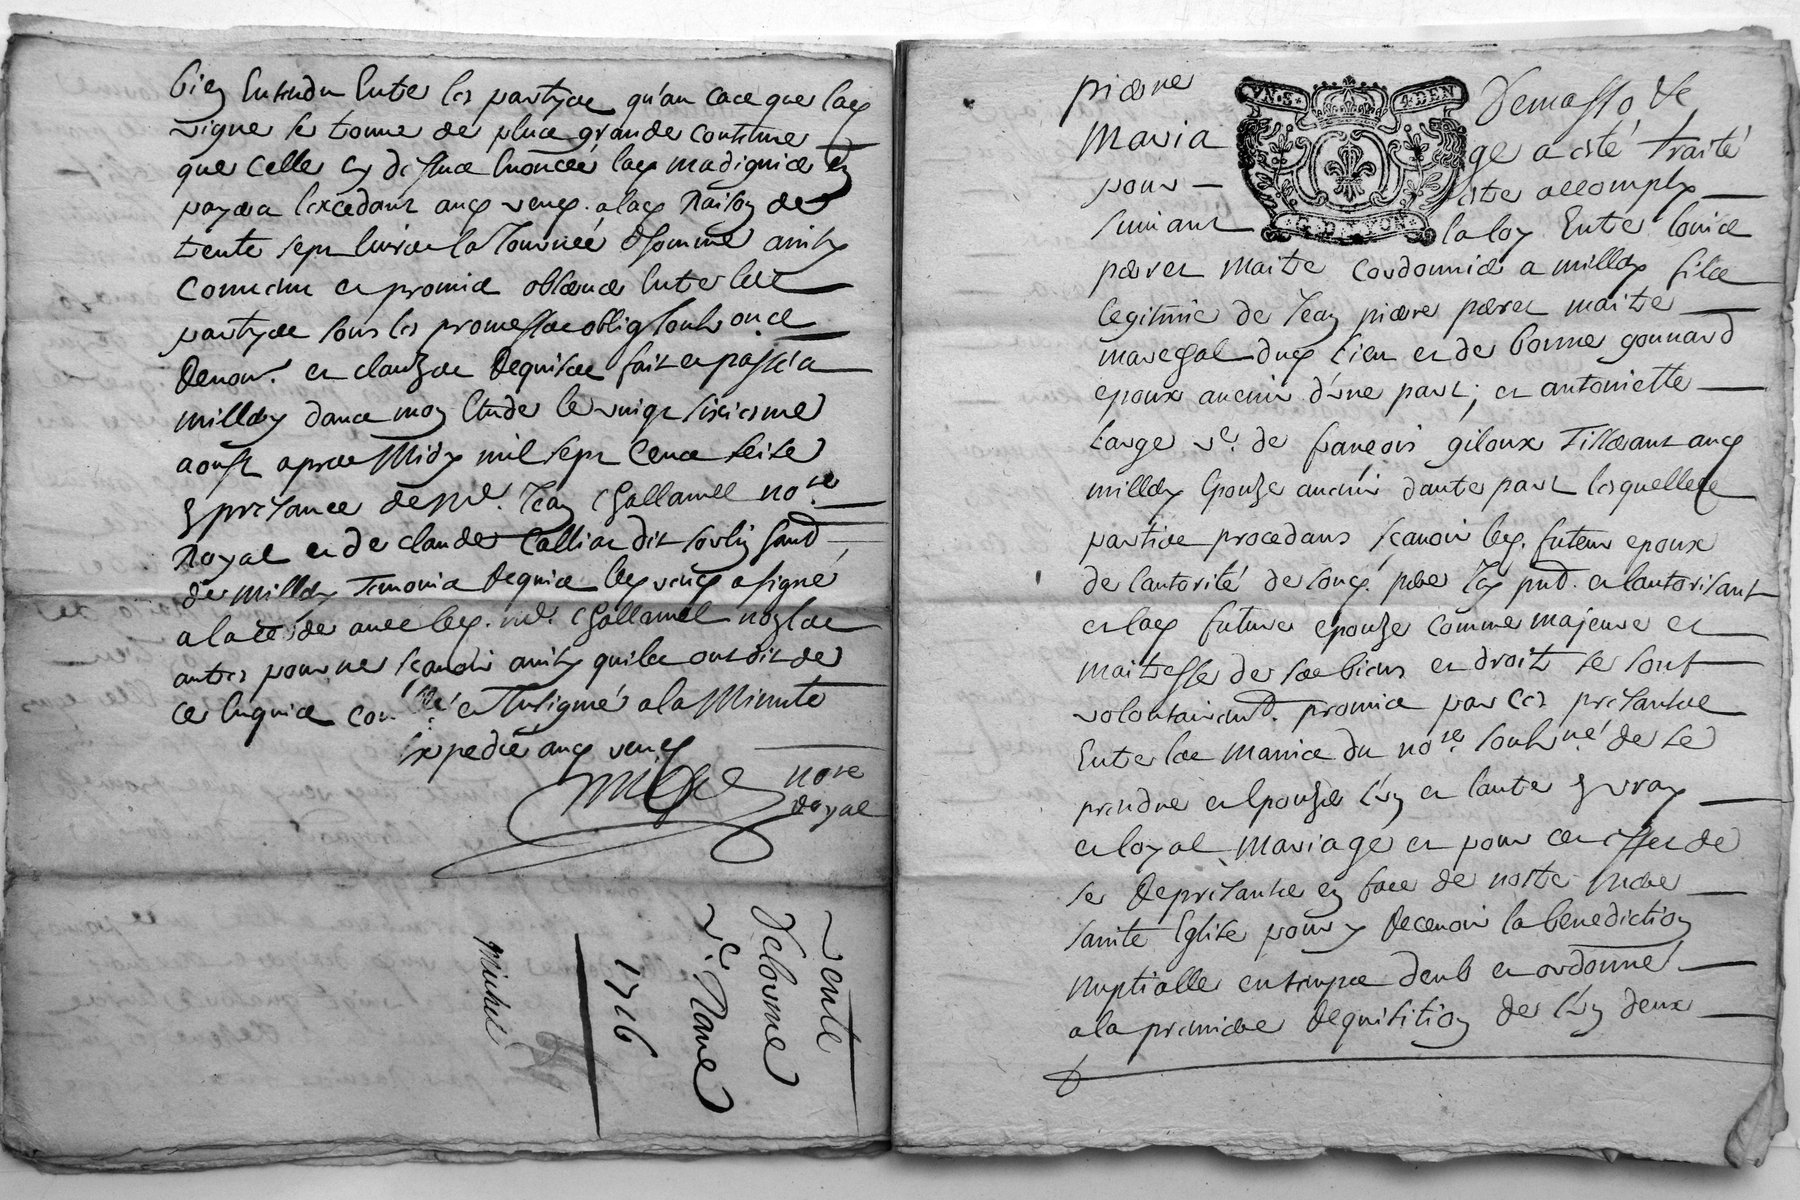 bien Entendu Entre les partyes qu'au cas que lad
vigne se trouve de plus grande contenue
que celle cy dessus enoncée lad madignier en
payera lexcedant aud vend. a lad Raison de
trente sept livres la Journée d'homme ainsy
convenu et promis observer Entre les
partyes sous les promesses oblig
Renon. et clauses Requises fait et passé a
millery dans mon Etude le vingt sixiesme
aoust apres Midy mil sept Cens seize
En presance de Me. Jean Challamel nore
Royal et de claude
de millery Temoins Requis led vend a signé
avec led. me. Challamel non les
autres pour ne scavoir ainsy quils ont dit de
ce Enquis et soussigné a la Minute
Expedié aud vend
nore
Royal
Vente
Delorme
Vc. Nave
1716
Michel
pierre
Maria
VN.S. 4.DEN
G.D.LYON
ge a esté traité
pour — estre accomply
suivant la loy Entre Louis
perret Maitre Cordonnier a millery fils
legitime de Jean pierre perret maitre
marechal dud lieu et de bonne gonnard
epoux avenir d'une part; et antoinette
targe ve. de françois giloux Tisserant aud
millery Epouse avenir dautre part lesquelles
parties procedans scavoir led. futeur epoux
de lautorité de soud. pere Icy pnt. et lautorisant
et lad future epouse comme majeure et
maitresse de ses biens et droits se sont
volontairemt. promis par ces presantes
Entre les mains du nore. soubne de se
prendre et Epouser l'un et lautre En vray
et loyal Mariage et pour ce effet de
se Representer en face de nostre mere
sainte Eglise pour y Recevoir la benediction
Nuptialle en temps deub et ordonné
a la premiere Requisition de l'un deux